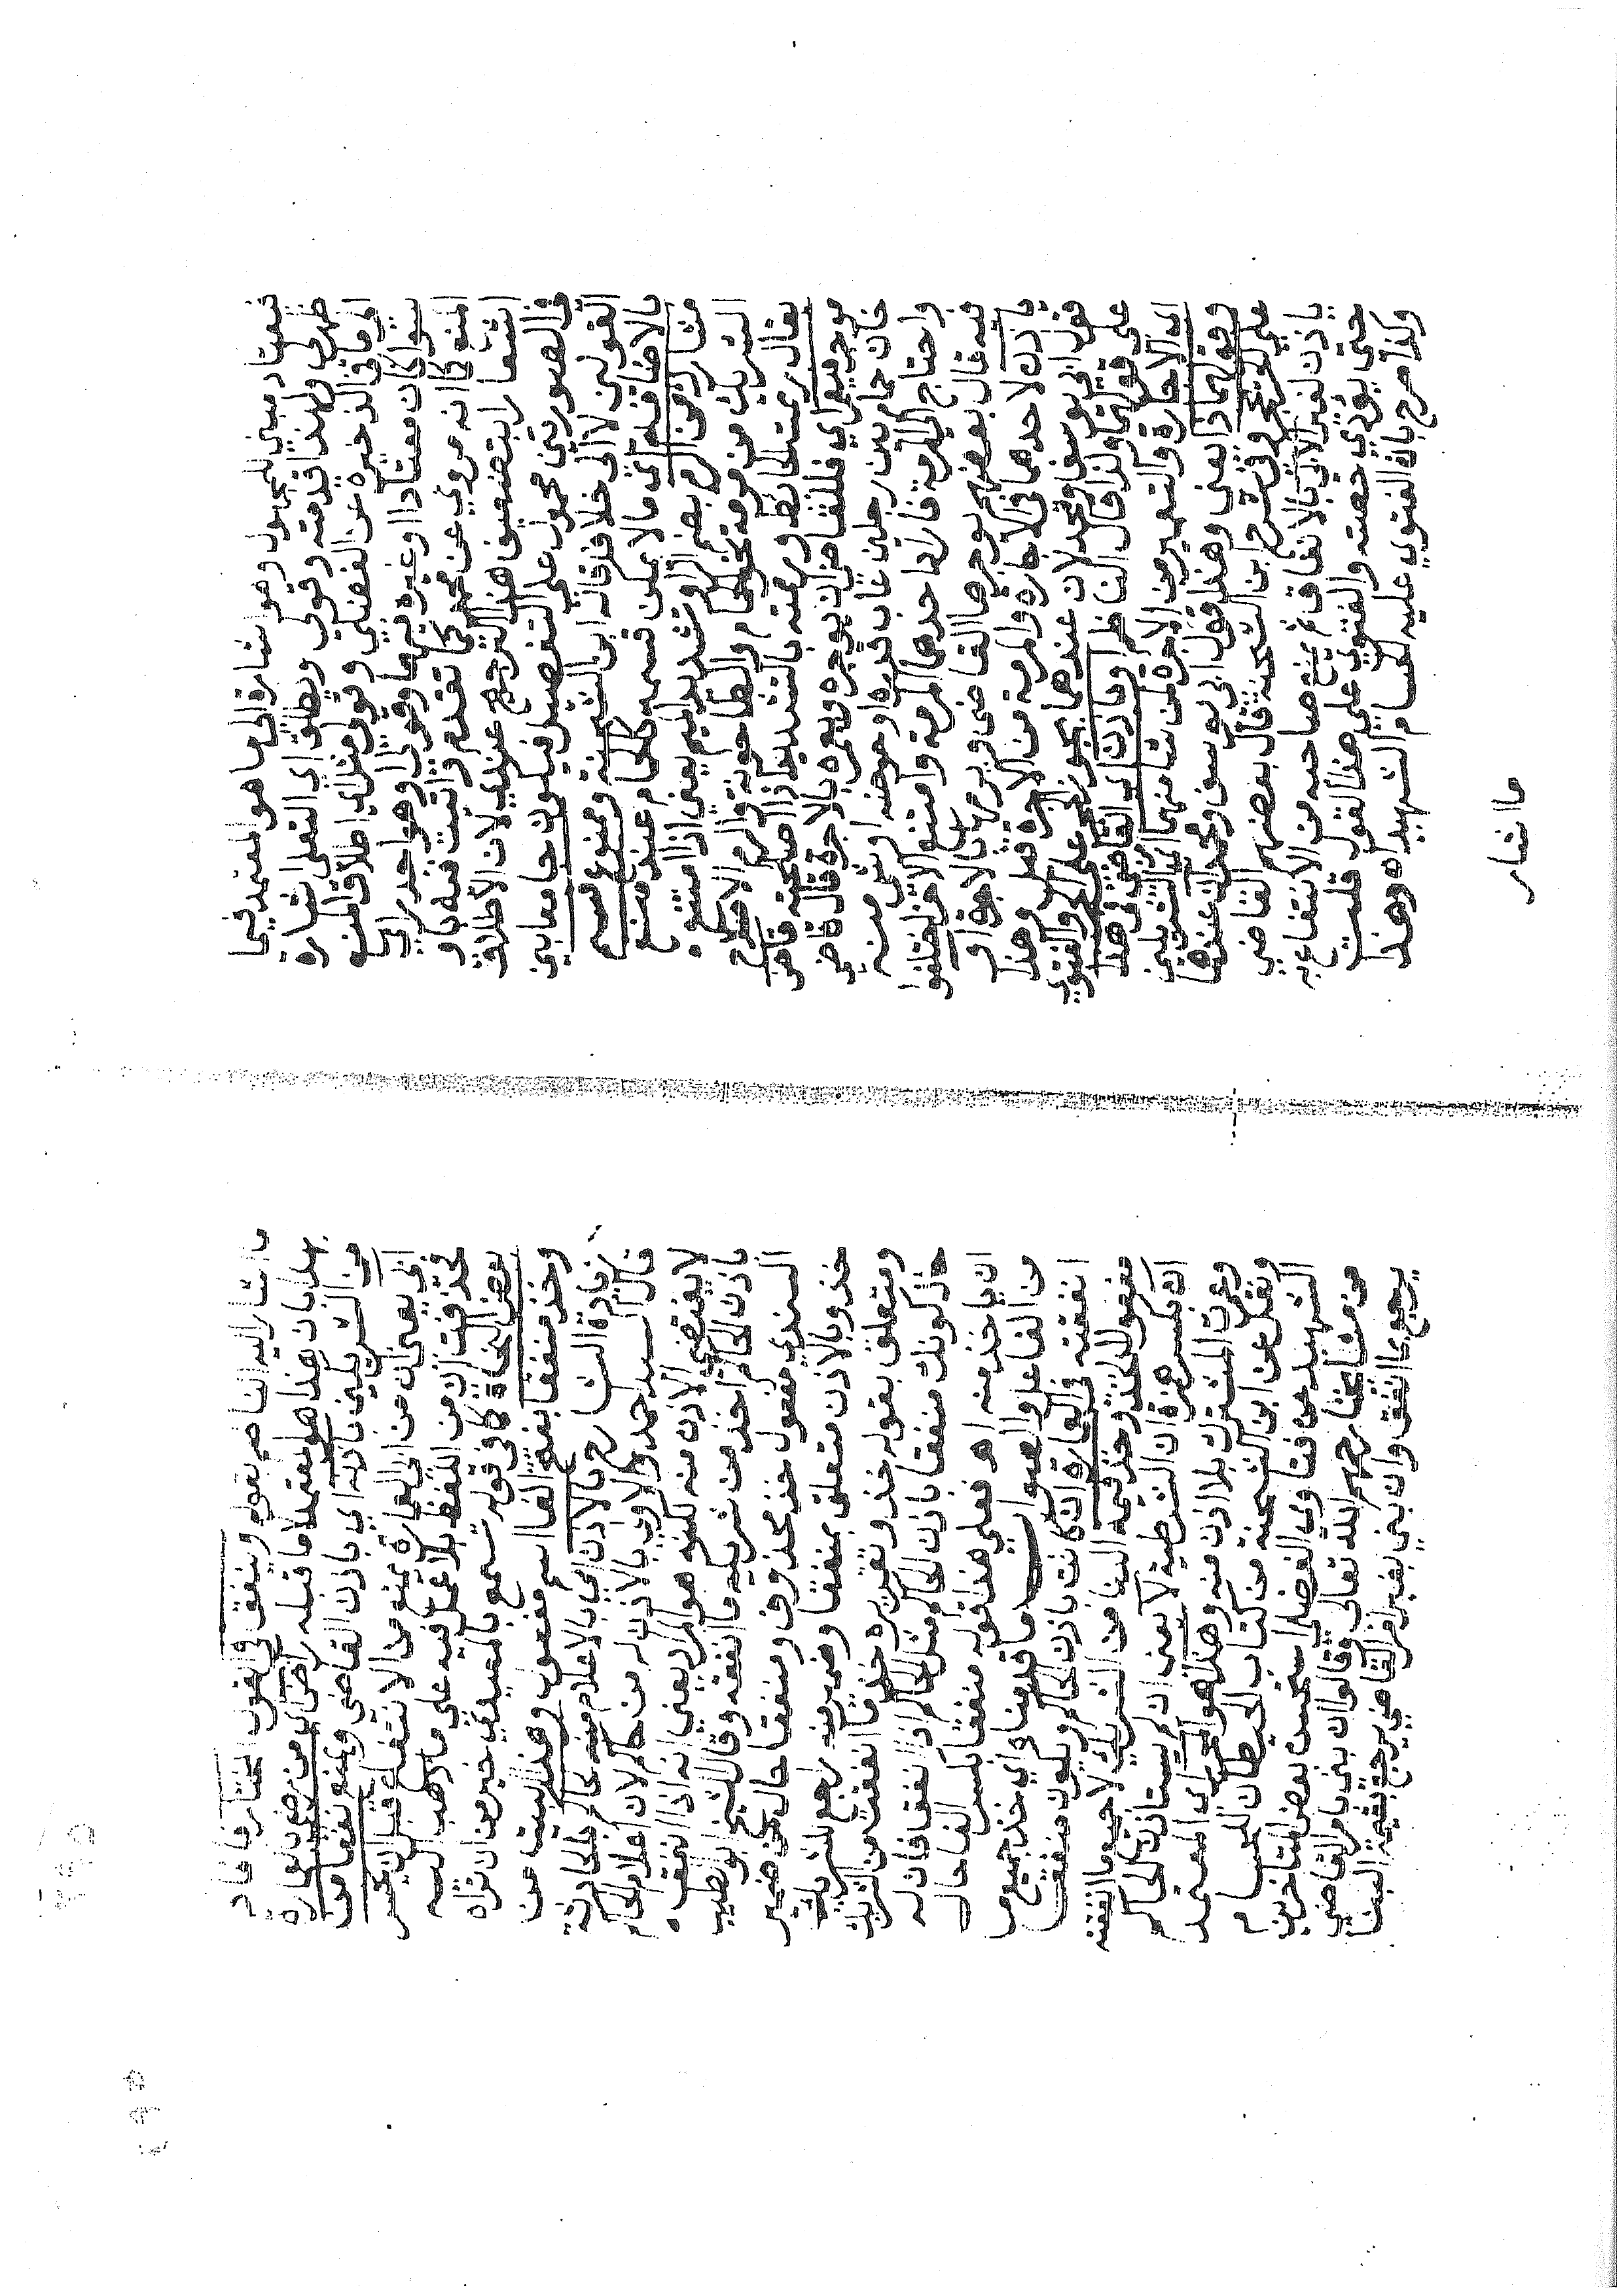 فيعتاد مبني للمجهول وهو اشارة الى ما هو المعتمد فيما
ظهر لي ولهذا قدمته وقولي ويطلق اي التعلي اشارة
الى ما في الذخيرة عن الفضلي وقولي مثلا اي اطلاق المنع
سواء كان معتادا او غيره فيهما وقولي وهو اجدر اي
المنع كما انه مروي عن محمد كما تقدم واتيت فيه باو
اشعارا بتضعيف هذا الترجيح عندي لان الاطلاق
في الصورتين محمول على التفصيل فيكون جامعا بين
القولين لا الى خلاف قاله ابن الشحنة وممنوع قسم
بالاضافة اي ما لا يمكن قسمه كالحمام عند منع
مشارك من الرم بضم الراء وتشديد الميم يعني اذا امتنع
الشريك من مرمة نحو الحمام والطاحونة والرم الاصلاح
يقال رممت الحائط ورممته بالتشديد اذا اصلحته قاض
موجر يعني فللقاضي ان يوجره ويعمره بالاجرة قال قاضي
خان حمام بين رجلين غاب قدره او حوضه او شي منه
واحتاج الى المرمة فاراد احدهما المرمة وامتنع الاخر اختلفوا
فيه قال بعضهم يوجرها القاضي ويرمها بالاجرة او
ياذن لاحدهما في الاجارة والمرمة من الاجرة قيل وهذا
قول ابي يوسف ومحمد لان عندهما يجوز الحجر على الحر والفتوي
على قولهما ولذا قال الناظم وياذن اي القاضي في هذا
اي الاجارة والتعمير من الاجرة لمن شا منهما اي الشريكين
وقولهما ذا يعني وهذا قول ابي يوسف ومحمد لان عندهما
على الحر يحجر وفي شرح ابن الشحنة قال بعضهم القاضي
ياذن لغير الابي بالانفاق ثم يمنع صاحبه من الانتفاع به
حتى يودي حصته والفتوي على هذا القول قلت
وكذا صرح بان الفتوي عليه الحسام الشهيد اه وهذا
ما اشار
ما اشار اليه الناظم بقوله وينفق في القول المختار فافاد
بهذا بان هذا هو المعتمد لا ما قبله راض اي من رضي بالعمارة
من الشريكين باذنه اي باذن القاضي ويمنع نفعا من
ابى يعني ان من ابى العمارة يمنع من الانتفاع قبل ان يخسر
فحذفت ان من اللفظ بلا عمل فيه على ما ذهب اليه
بعض النحاة كما في قولهم تسمع بالمعيدي خير من ان تراه
وخذ منفقا بفتح الفا اسم مفعول وهذا البيت من
زيادة الشارح بالاذن اي بالاعلام منه لحاكم بالحادثة
قال السيد احمد والاولى بالاذن له من حاكم لان اعلام الحاكم
لا يقتضي الاذن منه لكنه هو المراد يعني انه اذا انفق
باذن الحاكم اخذ من شريكه ما انفقه وقال الشيخ ابو الطيب
السندي مفعول خذ محذوف ومنفقا حال من ضمير
خذ وبالاذن متعلق بمنفقا وضمير منه راجع للشريك
ومتعلق بقوله خذ وتقديره خذ ما انفقت من الشريك
حال كونك منفقا باذن الحاكم مثل الحاكم اذا انفق فان له
ان ياخذ منه اهـ فعلى هذا قوله منفقا بكسر الفا حال
من الفاعل والصواب ما قدمناه اي خذ جميع ما
انفقته في العمارة ان كانت باذن الحاكم ويكون منفقا
مفعول الخذ وخذ قيمة البنا من الشريك لا جميع ما انفقته
ان بكسر همزة ان الشرطية لا يعني ان لم يستاذن الحاكم
وعمرت المشترك بلا اذن منه وهذا هو المحرر اي المعتمد
ونقل عن ابن الشحنة من كتاب الحيطان للحسام
الشهيد عن فتاوي الفضلي استحسن بعض المتاخرين
من مشايخنا رحمهم الله تعالى وقالوا ان بني بامر القاضي
يرجع بما انفق وان بني بغير امر القاضي يرجع بقيمة البنا